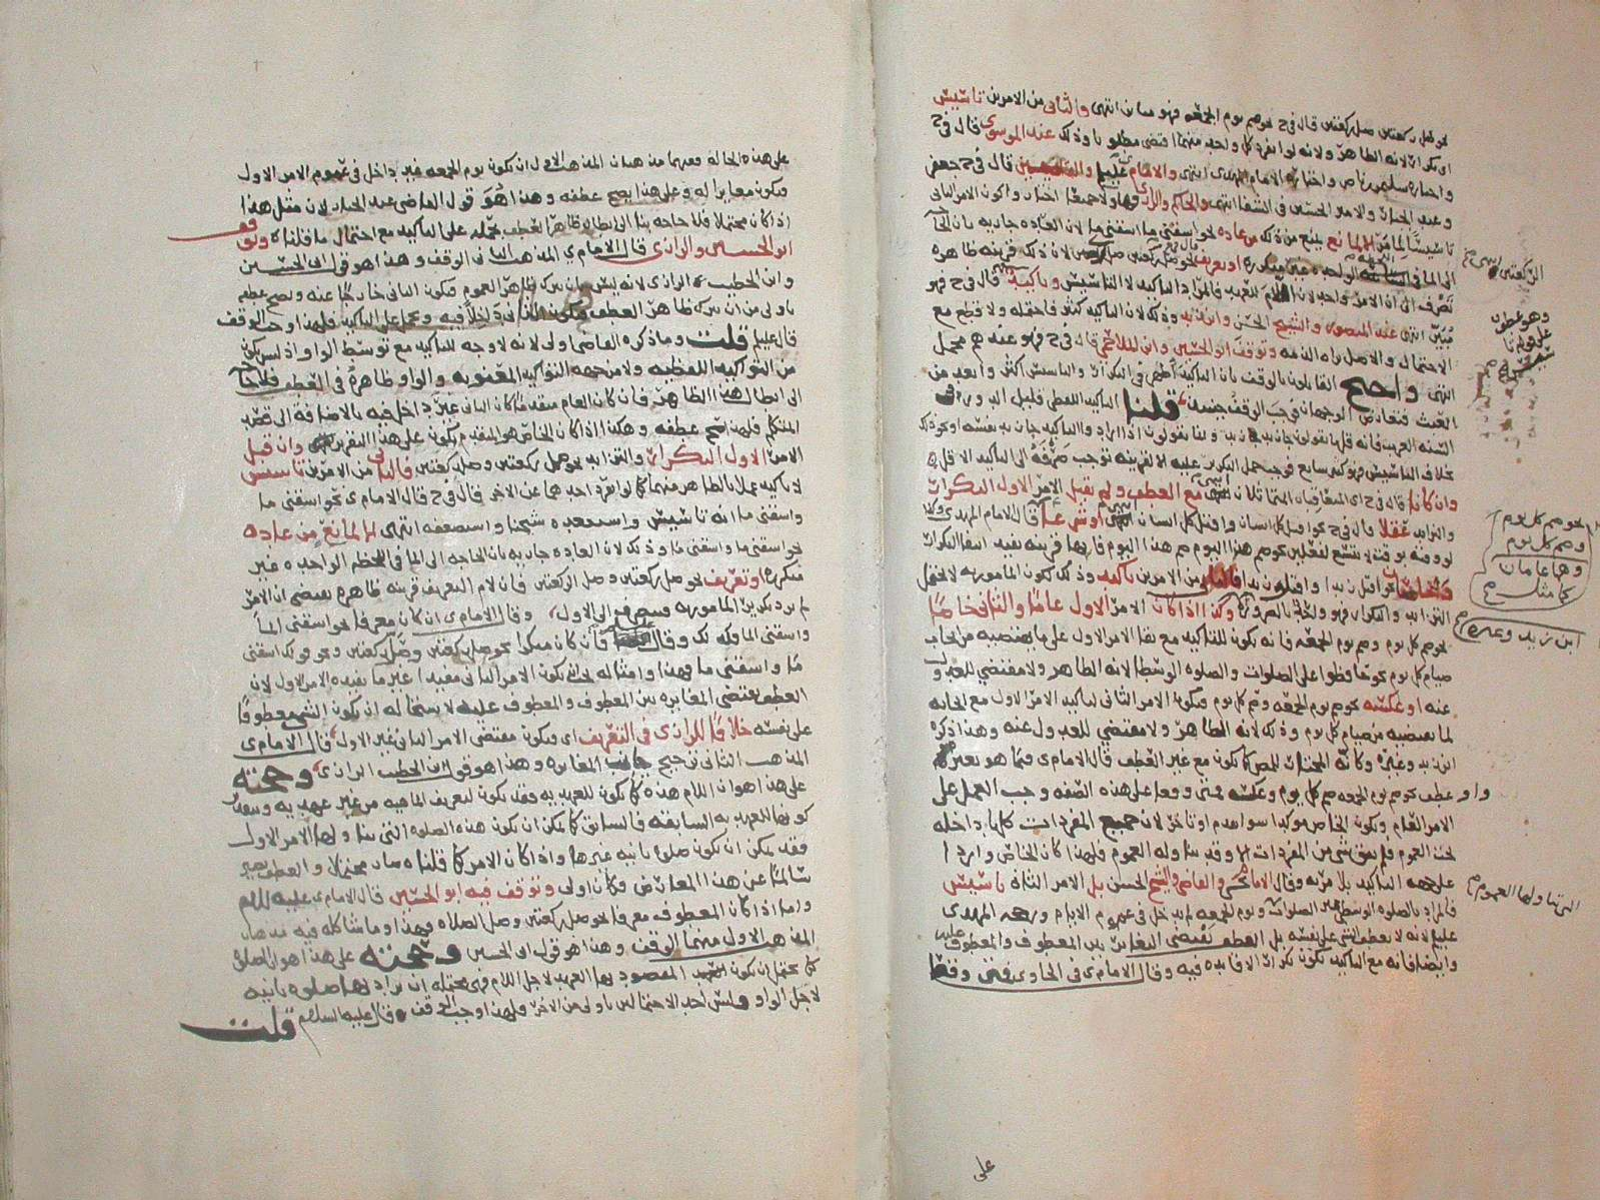 نحو صل ركعتين صل ركعتين قال في ح نحو صم يوم الجمعه فهو بيان انتهى والثاني من الامرين تاسيس
او تكرار لانه الظاهر ولانه لو انفرد كل واحد منهما اقتضى مطلوبا وذلك عند الموسوي قال في ح
واختاره الامام المهدي انتهى والامام قال في ح جعفر
وعبد الجبار والامير الحسين في الشفا انتهى والحاكم والرازي
تاسيسا لما مر الا لمانع يمنع من ذلك من عاده نحو اسقني ما اسقني ما لان العاده جاريه بان الحاجه
الى الما في الواحده غير متكرره او تعريف نحو صل ركعتين صل الركعتين لان ذلك قرينه ظاهره
تصرف الى ان الامر واحد لان اللام للعهد فالمراد التاكيد لا التاسيس وتاكيد قال في ح فهو
مبين انتهى عند المنصور والشيخ الحسن وابن زيد وذلك لان التاكيد كثر فاحتمله ولا قطع مع
الاحتمال والاصل براه الذمه وتوقف ابو الحسين وابن الملاحمي قال في ح فهو عندهم مجمل
انتهى واحتج القايلون بالوقف بان التاكيد اظهر في التكرار والتاسيس اكثر وابعد من
العبث فتعارض الوجهان فوجب الوقف حينئذ قلنا التاكيد اللفظي قليل الورود في
السنه العرب فانه قل ما يقولون جا زيد جا زيد وانما يقولون اذا اراد والتاكيد جا زيد نفسه او نحو ذلك
بخلاف التاسيس فهو كثير شايع فوجب حمل التكرير عليه الا لقرينه توجب صرفه الى التاكيد الاقل
وان كانا قال في ح اي المتعاقبان المتماثلان مع العطف ولم يقبل الامر الاول التكرار
والتزايد عقلا قال في ح نحو اقتل كل انسان واقتل كل انسان انتهى او شرعا قال الامام المهدي وكذا
لو وقته بوقت لا يتسع لفعلين نحو صم هذا اليوم صم هذا اليوم فانها قرينه تفيد انتفا التكرار
نحو اقتل زيدا واقتل زيدا فالثاني من الامرين تاكيد وذلك لكون المامور به لا يحتمل
التزايد والتكرار وكذا اذا كان الامر الاول عاما والثاني خاصا
نحو صم كل يوم وصم يوم الجمعه فانه يكون للتاكيد مع بقا الامر الاول على ما يقتضيه من ايجاب
صيام كل يوم نحو حافظوا على الصلوات والصلوه الوسطى لانه الظاهر ولا مقتضي للعدول
عنه او عكسه نحو صم يوم الجمعه وصم كل يوم فيكون الامر الثاني لتاكيد الامر الاول مع ايجابه
لما يقتضيه من صيام كل يوم وذلك لانه الظاهر ولا مقتضي للعدول عنه وهذا ذكره
ابن زيد وغيره وكانه المختار للمص كما يكون مع غير العطف قال الامام ي وما هو بغير
واو عطف نحو صم يوم الجمعه صم كل يوم وعكسه فمتى وقعا على هذه الصفه وجب العمل على
الامر العام ويكون الخاص موكدا سوا تقدم او تاخر لان جميع المفردات كلها داخله
تحت العموم فلم يبق شي من المفردات الا وقد تناوله العموم فلهذا كان الخاص واردا
على جهه التاكيد بلا مريه وقال الامام ي والقاضي والشيخ الحسن بل الامر الثاني تاسيس
فالمراد بالصلوه الوسطى غير الصلوات ويوم الجمعه لم يدخل في عموم الايام ورجحه المهدي
عليلم لانه لا يعطف الشي على نفسه بل العطف يقتضي التغاير بين المعطوف والمعطوف عليه
وايضا فانه مع التاكيد يكون تكرارا لافايده فيه وقال الامام ي في الحاوي فمتى وقعا
الركعتين
وهو عطوف
نحو صم كل يوم
وصم كل يوم
وهما عامان
كما مثل
ابن زيد وغيره
التي تناولها العموم
على
على هذه الحاله ففيهما مذهبان المذهب الاول ان يكون يوم الجمعه غير داخل في عموم الامر الاول
ويكون مغايرا له وعلى هذا يصح عطفه وهذا هو قول القاضي عبد الجبار لان مثل هذا
اذا كان محتملا فلا حاجه بنا الى ابطال ظاهر العطف بحمله على التاكيد مع احتمال ما قلناه وتوقف
ابو الحسين والرازي قال الامام ي المذهب الثاني الوقف وهذا هو قول ابي الحسين
وابن الخطيب الرازي لانه ليس بان يترك ظاهر العموم فيكون الثاني خارجا عنه ويصح عطفه
باولى من ان يترك ظاهر العطف ويكون الثاني داخلا فيه ويحمل على التاكيد فلهذا وجب الوقف
قال عليلم قلت وما ذكره القاضي اولى لانه لا وجه للتاكيد مع توسط الواو اذ ليس يكون
من التواكيد اللفظيه ولا من جهه التواكيد المعنويه والواو ظاهره في العطف فلا حاجه
الى ابطال هذا الظاهر فان كان العام متقدما كان الثاني غير داخل فيه بالاضافه الى قصد
المتكلم فلهذا صح عطفه وهكذا اذا كان الخاص هو المتقدم يكون على هذا التقرير وان قبل
الامر الاول التكرار والتزايد نحو صل ركعتين وصل ركعتين فالثاني من الامرين تاسيس
لا تاكيد عملا بالظاهر منهما كما لو انفرد احدهما عن الاخر قال في ح قال الامام ي نحو اسقني ما
واسقني ما انه تاسيس واستبعده شيخنا واستضعفه انتهى الا لمانع من عاده
نحو اسقني ما واسقني ما وذلك لان العاده جاريه بان الحاجه الى الما في اللحظه الواحده غير
متكرره او تعريف نحو صل ركعتين وصل الركعتين فان لام التعريف قرينه ظاهره يقتضي ان الامر
لم يرد بتكرير المامور به فينصرف الى الاول وقال الامام ي ان كان معرفا نحو اسقني الما
واسقني الما وقال فان كان منكرا نحو صل ركعتين وصل ركعتين ونحو قولك اسقني
ما واسقني ما فهذا وامثاله يكون الامر الثاني مفيدا غير ما يفيده الامر الاول لان
العطف يقتضي المغايره بين المعطوف والمعطوف عليه لاستحاله ان يكون الشي معطوفا
على نفسه خلافا للرازي في التعريف اي فيكون مقتضى الامر الثاني غير الاول قال الامام ي
المذهب الثاني ترجيح جانب المغايره وهذا هو قول ابن الخطيب الرازي وحجته
على هذا هو ان اللام هذه كما تكون للعهديه فقد تكون لتعريف الماهيه من غير عهديه وبتقدير
كونها للعهديه السابقه فالسابق كما يمكن ان يكون هذه الصلوه التي تناولها الامر الاول
فقد يمكن ان يكون صلوه ثانيه غيرها واذا كان الامر كما قلناه صار محتملا والعطف يصير
سالما عن هذا المعارض فكان اولى وتوقف فيه ابو الحسين قال الامام ي عليه السلام
واما اذا كان المعطوف معرفا نحو صل ركعتين وصل الصلاه فهذا وما شاكله فيه مذهبان
المذهب الاول منهما الوقف وهذا هو قول ابي الحسين وحجته على هذا هو ان الصلوه
كما يحتمل ان يكون المقصود بها العهد لاجل اللام فهي محتمله ان يراد بها صلوه ثانيه
لاجل الواو وليس احد الاحتمالين باولى من الاخر فلهذا وجب التوقف قال عليه السلام قلت